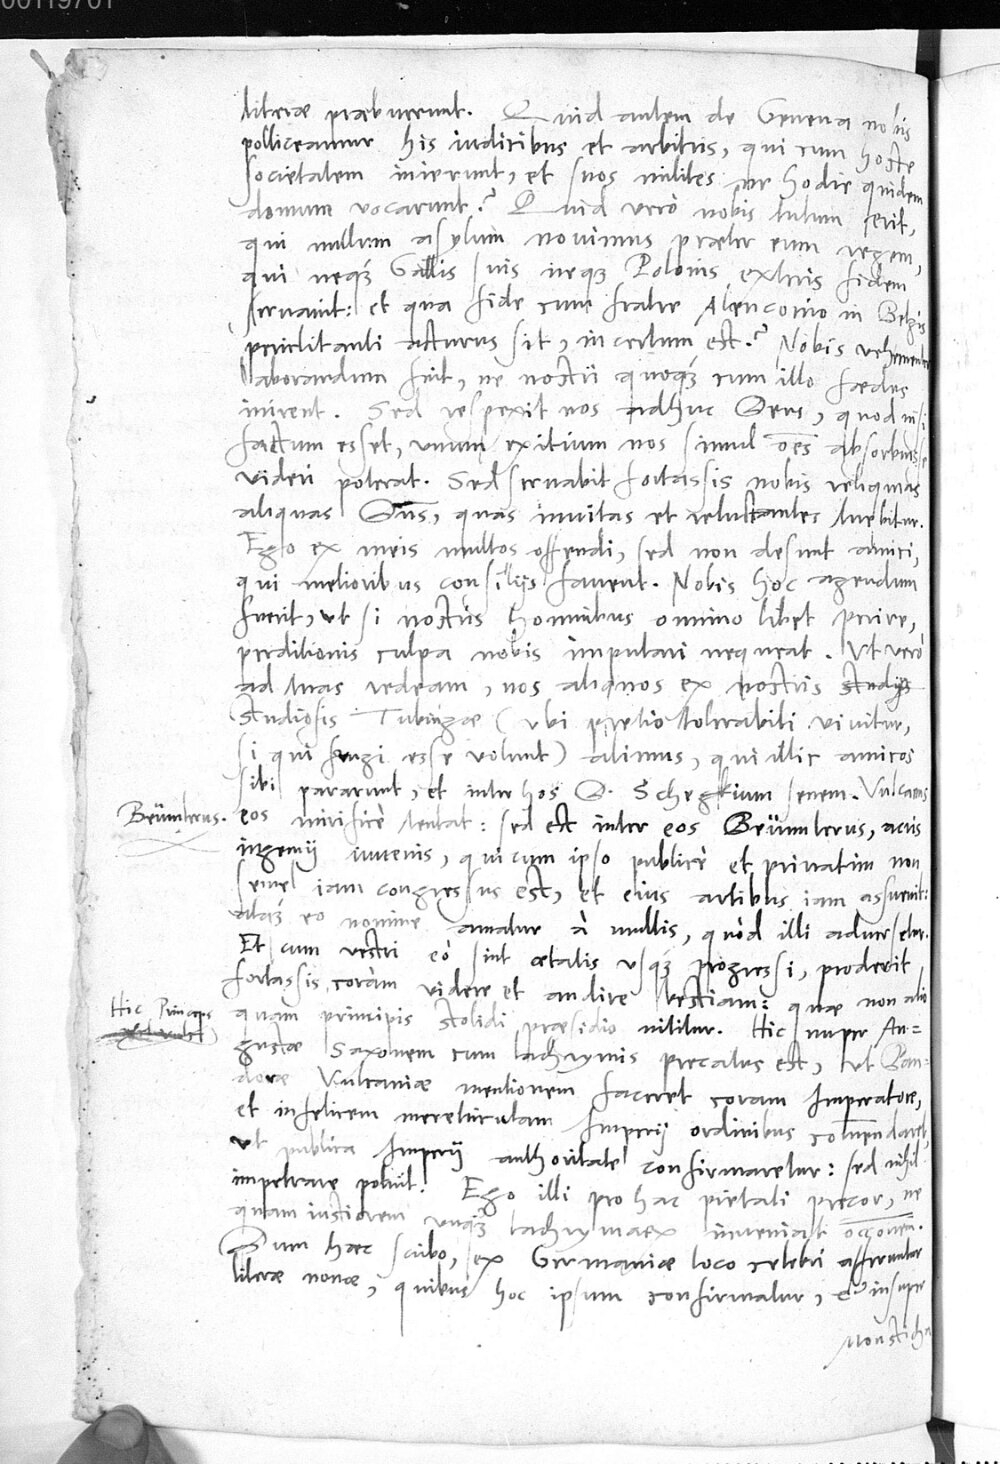 00119701
literæ præbuerunt. Quid autem de Geneua nobis
polliceamur his iudicibus et arbitris, qui cum hoste
societatem inierunt, et suos milites ne hodie quidem
domum vocarunt? Quid verò nobis tutum serit,
qui nullum asylum nouimus præter eum regem,
qui neqꝫ Gallis suis neqꝫ Polonis exteris fidem
seruauit: et qua fide cum fratre Alenconio in Belgis
periclitanti acturus sit, incertum est? Nobis vehementer
laborandum fuit, ne nostri quoqꝫ cum illo fœdus
inirent. Sed respexit nos adhuc Deus, quod nisi
factum esset, vnum exitium nos simul oẽs absorbuisse
videri poterat. Sed seruabit fortassis nobis reliquias
aliquas Dñs, quas inuitas et reluctantes tuebitur.
Ego ex meis multos offendi, sed non desunt amici,
qui melioribus consilijs fauent. Nobis hoc agendum
fuerit, vt si nostris hominibus omnino libet perire,
perditionis culpa nobis imputari nequeat. Vt verò
ad tuas redeam, nos aliquos ex nostris studijs
studiosis Tubingæ (vbi pretio tolerabili viuitur,
si qui frugi esse volunt) alimus, qui illic amicos
sibi pararunt, et inter hos D. Schegkium senem. Vulcanus
Beümlerus. eos mirificè tentat: sed est inter eos Beümlerus, acris
ingenij iuuenis, qui cum ipso publicè et priuatim non
semel iam congressus est, et eius artibus iam assueuit:
atqꝫ eo nomine amatur à multis, quòd illi aduersetur.
Et cum vestri eò sint ætatis vsqꝫ progressi, proderit
fortassis coràm videre et audire bestiam: quæ non alio
Hic Princeps
quam principis stolidi præsidio nititur. Hic nuper Au=
gustæ Saxonem cum lachrymis precatus est, vt Pan=
doræ Vulcaniæ mentionem faceret coram Imperatore,
et infelicem meretriculam Imperij ordinibus comendaret,
vt publica Imperij authoritate confirmaretur: sed nihil
impetrare potuit. Ego illi pro hac pietati precor, ne
quam iustiorem vnqꝫ lachrymarum inueniat occõnem.
Dum hæc scribo, ex Germaniæ loco celebri afferuntur
literæ nouæ, quibus hoc ipsum confirmatur, et insuper